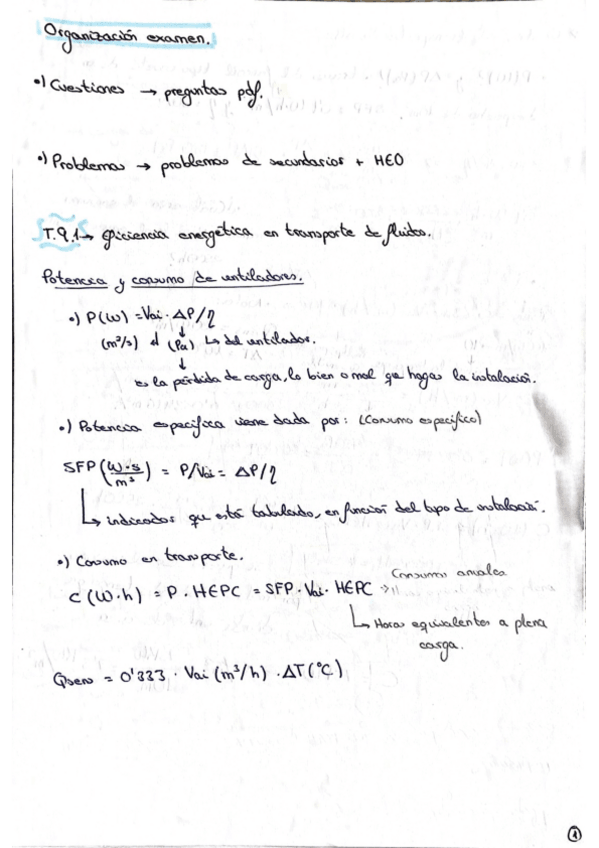 Organización examen.
•) Cuestiones → preguntas pdf.
•) Problemas → problemas de secundarios + HEO
T.9.1→ eficiencia energética en transporte de fluidos.
Potencia y consumo de ventiladores.
•) P(W) = Vai · ΔP/η
(m³/s) (Pa) ↳ del ventilador.
es la pérdida de carga, lo bien o mal que hagas la instalación.
•) Potencia específica viene dada por: (Consumo específico)
SFP (W·s/m³) = P/Vai = ΔP/η
↳ indicador que está tabulado, en función del tipo de instalación.
•) Consumo en transporte.
Consumos anuales
C (W·h) = P · HEPC = SFP · Vai · HEPC
↳ Horas equivalentes a plena
carga.
Qsens = 0'333 · Vai (m³/h) · ΔT(°C)
1